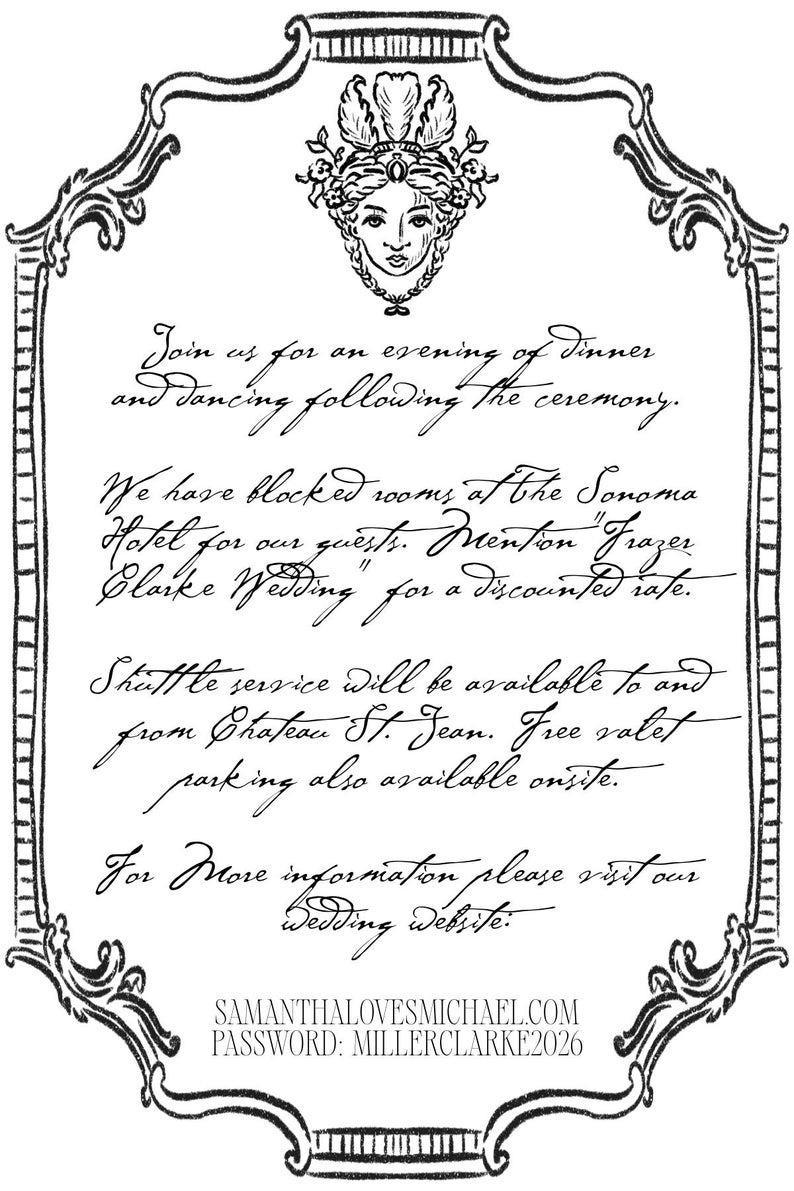 Join us for an evening of dinner
and dancing following the ceremony.
We have blocked rooms at The Sonoma
Hotel for our guests. Mention "Frazer
Clarke Wedding" for a discounted rate.
Shuttle service will be available to and
from Chateau St. Jean. Free valet
parking also available onsite.
For More information please visit our
wedding website:
SAMANTHALOVESMICHAEL.COM
PASSWORD: MILLERCLARKE2026